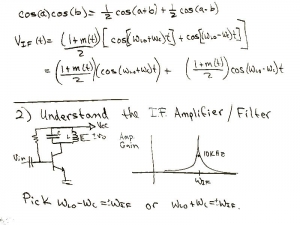 cos(a)cos(b) = ½ cos(a+b) + ½ cos(a-b)
V_IF(t) = (1+m(t)/2)[cos[(ω_LO+ω_c)t] + cos[(ω_LO-ω_c)t]
= (1+m(t)/2)(cos(ω_LO+ω_c)t) + (1+m(t)/2) cos(ω_LO-ω_c)t
2) Understand the IF Amplifier / Filter
Vcc
Amp. Gain
Vin
10KHz
ω_IF
Pick ω_LO-ω_c = ω_IF or ω_LO+ω_c = ω_IF.